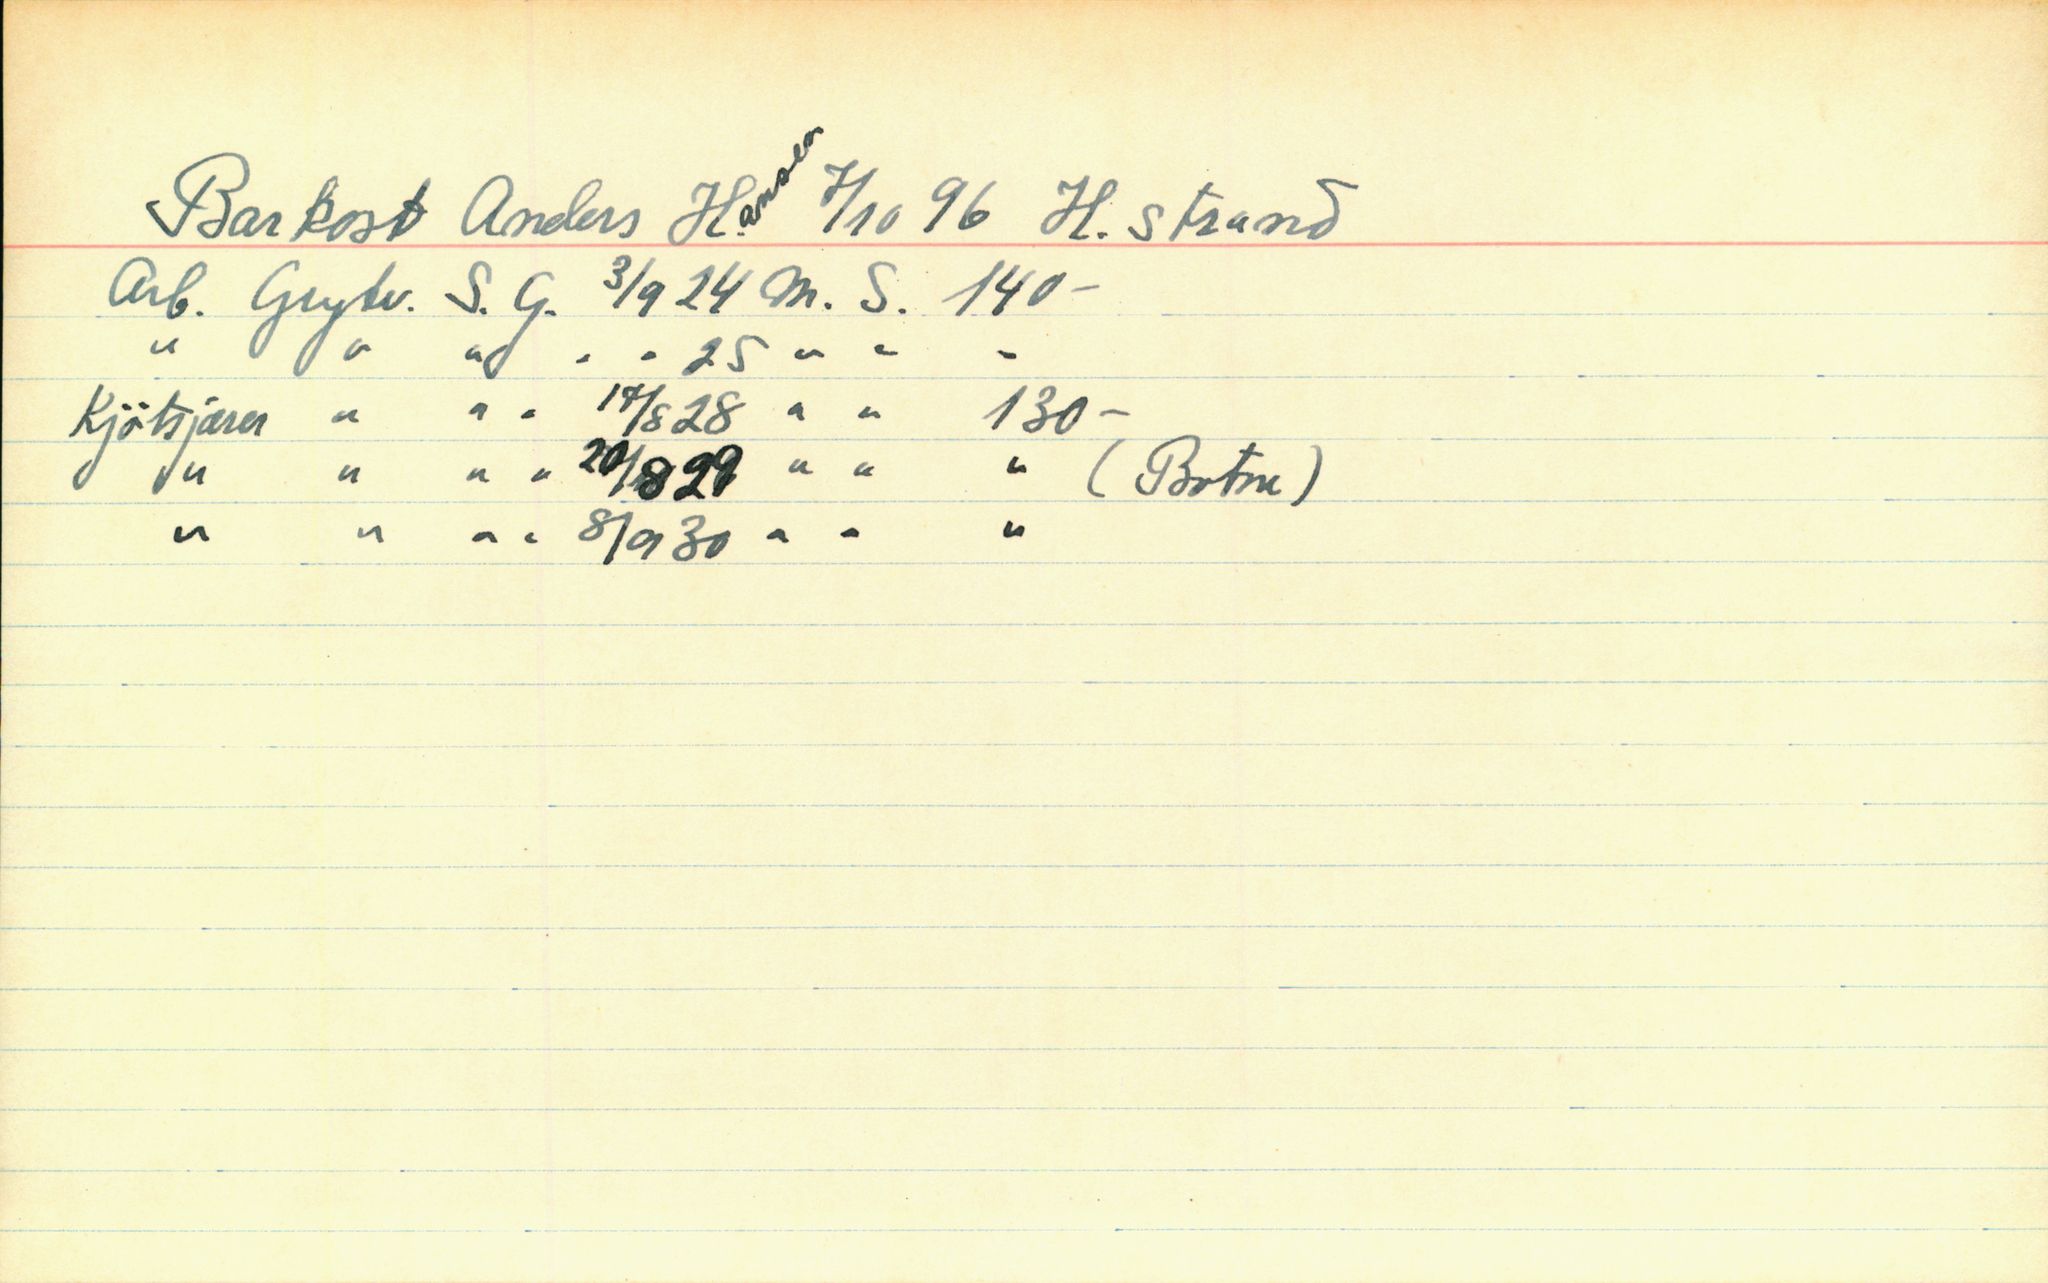 Barkost Anders H.ansen 7/10 96 H.strand
Arb. Grytv. S. G. 3/9 24 M. S. 140-
" " " " " 25 " " "
Kjötsjærer " " " 17/8 28 " " 130-
" " " " 20/8 29 " " " (Botne)
" " " " 8/9 30 " " "